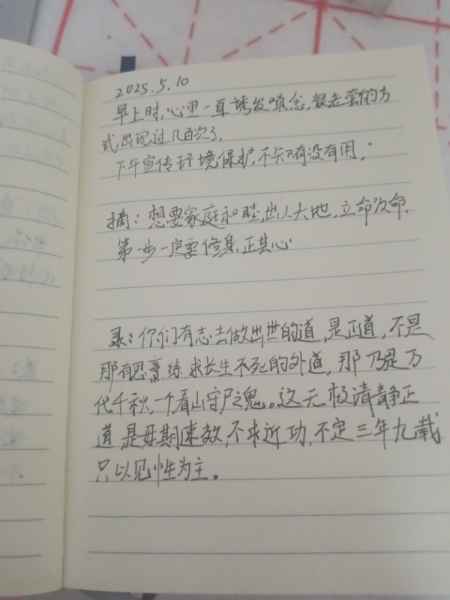 2025.5.10
早上时,心里一直诱发嗔念,
式出现过几百次了
下午宣传环境保护,不知有没有用。
摘:想要家庭和睦,出人头地,立命改命,
第一步一定要修身,正其心
录:你们有志去做出世的道,是正道,不是
那有意守、练求长生不死的外道,那乃是万
代千秋,一个看山守尸之鬼。这无极清静正
道是毋期速效,不求近功,不定三年九载
只以见性为主。